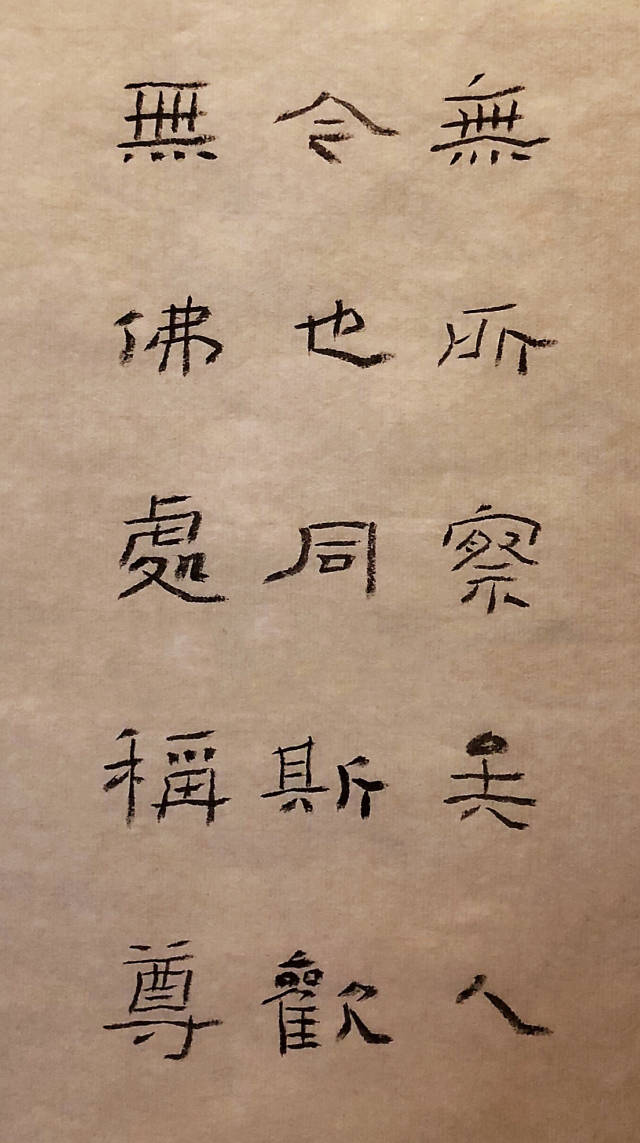 無所察人
今也同斯歡
無佛處稱尊